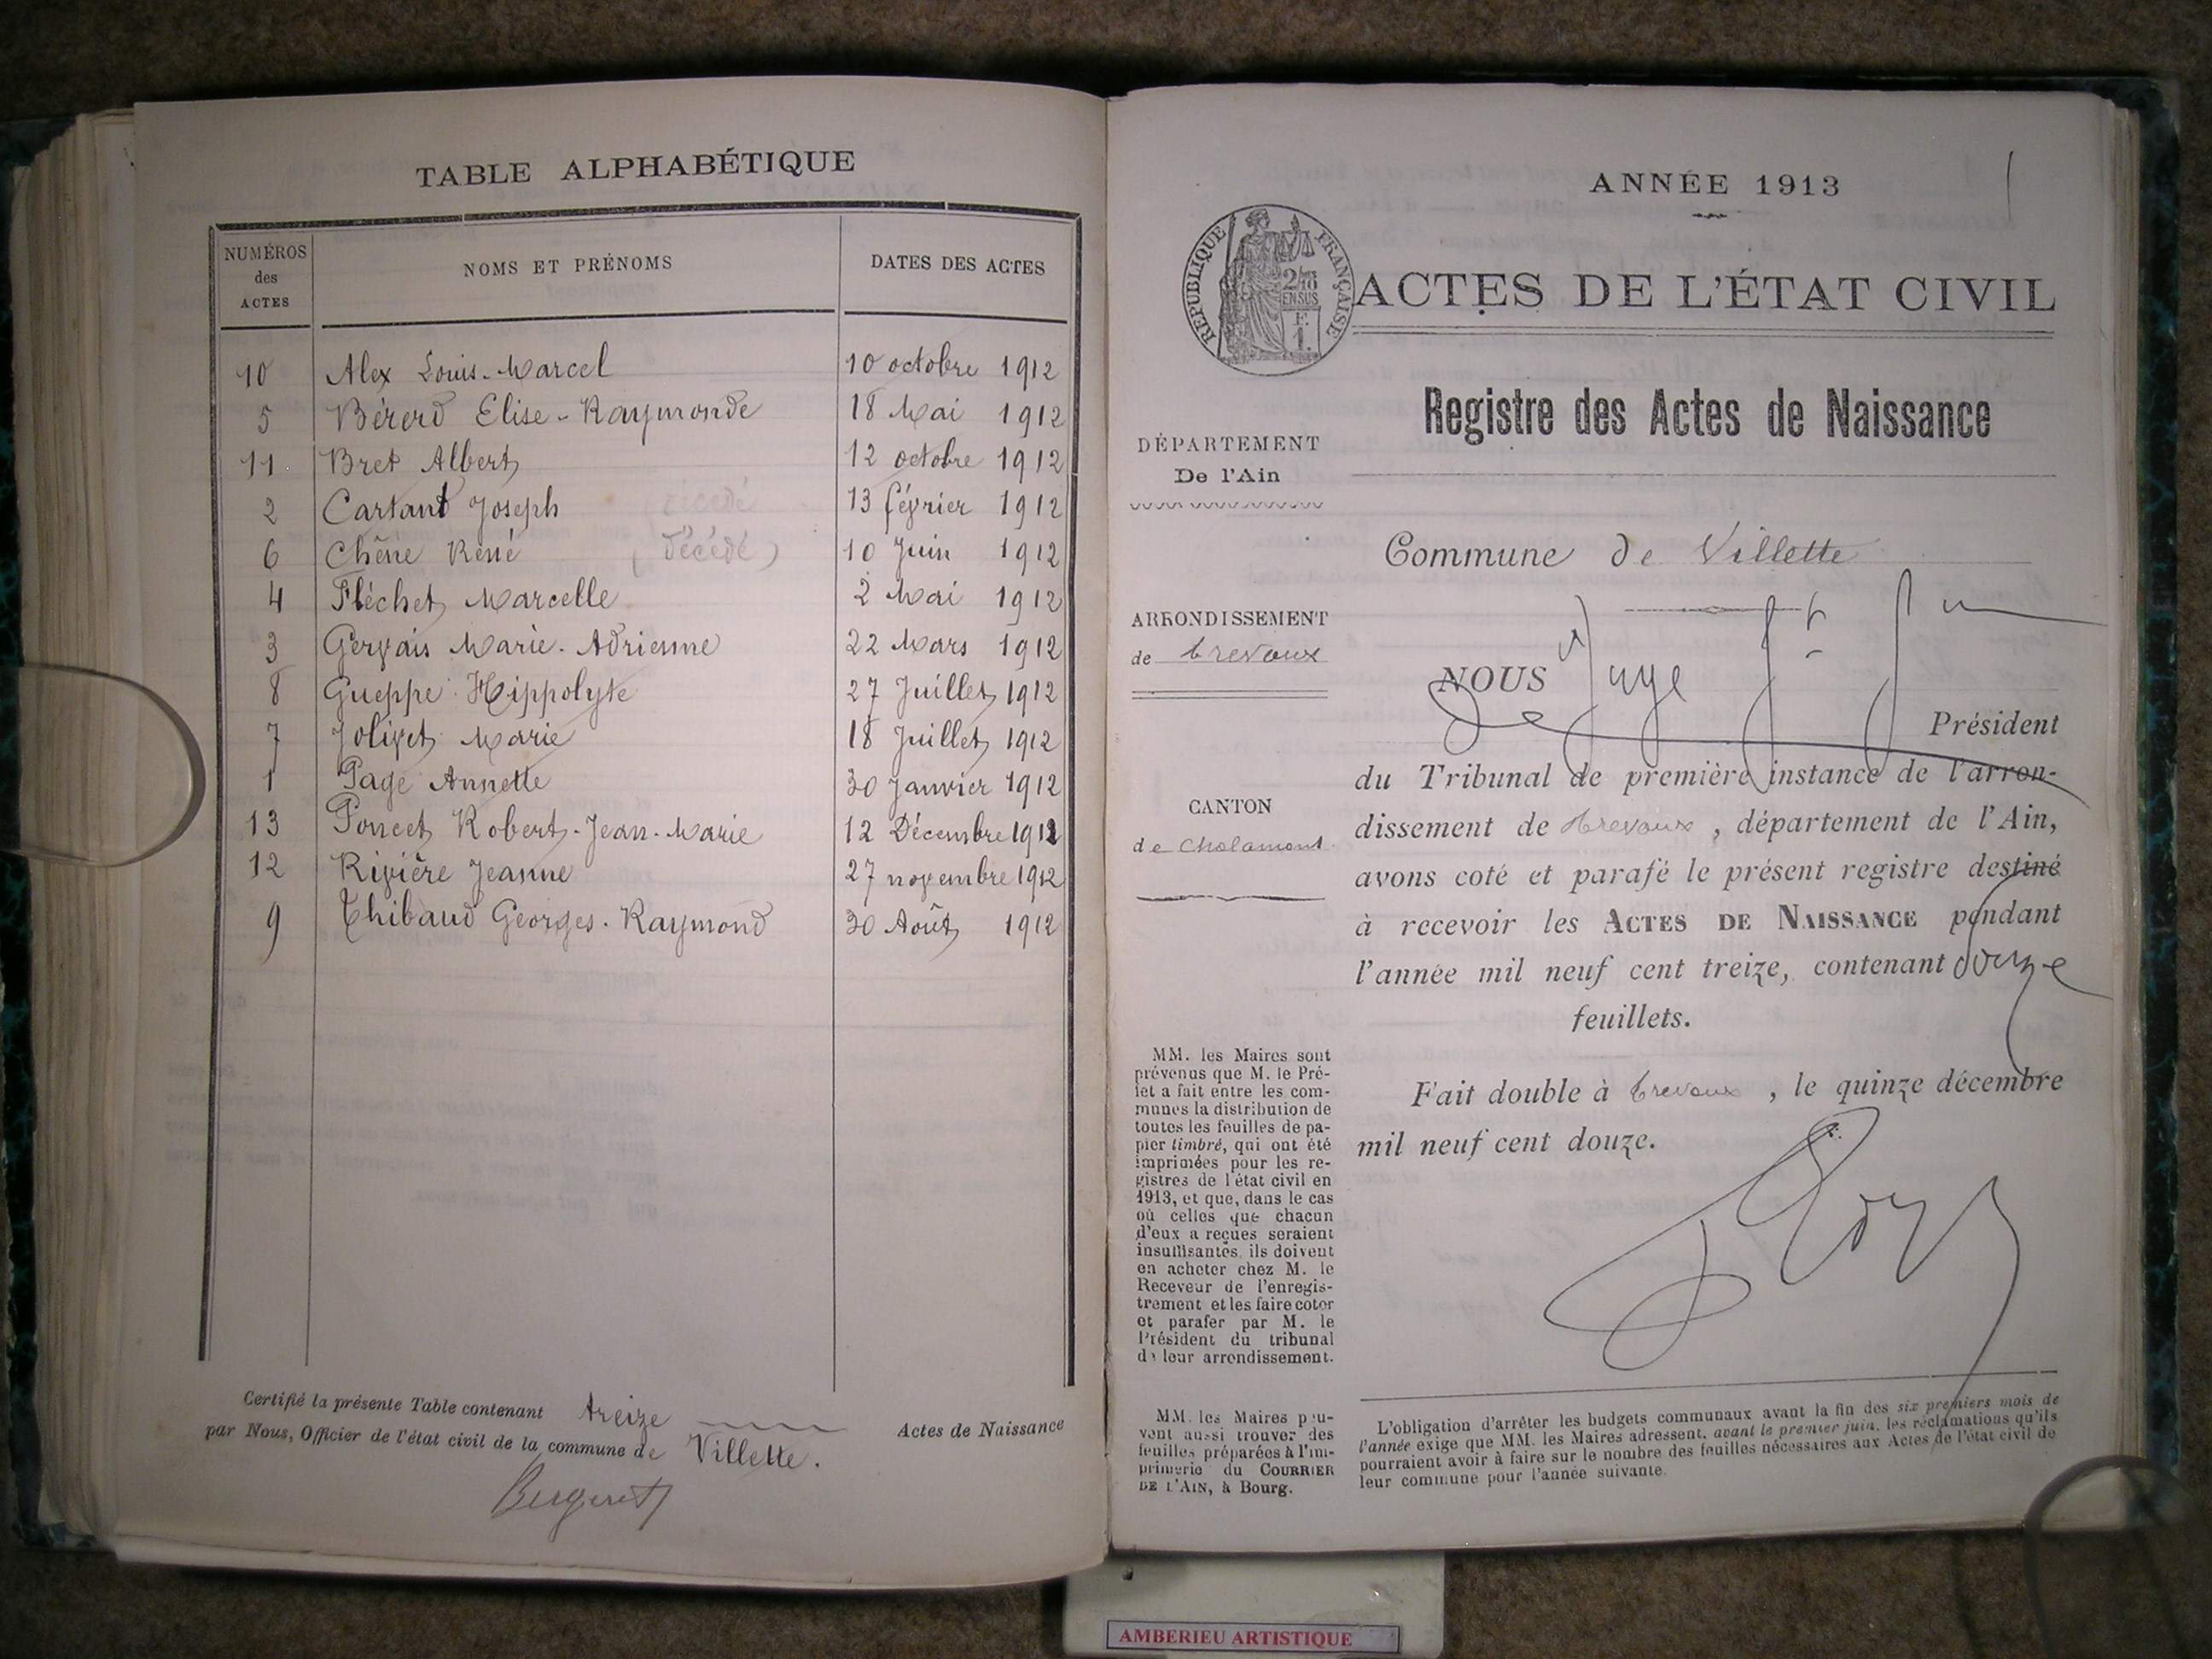 TABLE ALPHABÉTIQUE
NUMÉROS des ACTES
NOMS ET PRÉNOMS
DATES DES ACTES
10 Alex Louis-Marcel 10 octobre 1912
5 Bérerd Elise-Raymonde 18 Mai 1912
11 Bret Albert 12 octobre 1912
2 Cartant Joseph (décédé 13 février 1912
6 Chêne René (décédé) 10 Juin 1912
4 Fléchet Marcelle 2 Mai 1912
3 Gervais Marie-Adrienne 22 Mars 1912
8 Gueppe Hippolyte 27 Juillet 1912
7 Jolivet Marie 18 Juillet 1912
1 Page Annette 30 Janvier 1912
13 Poncet Robert-Jean-Marie 12 Décembre 1912
12 Rivière Jeanne 27 novembre 1912
9 Thibaud Georges-Raymond 30 Août 1912
Certifié la présente Table contenant treize Actes de Naissance
par Nous, Officier de l'état civil de la commune de Villette.
Bergeret
ANNÉE 1913
RÉPUBLIQUE FRANÇAISE
2/10
EN SUS
F.
1.
ACTES DE L'ÉTAT CIVIL
Registre des Actes de Naissance
DÉPARTEMENT
De l'Ain
Commune de Villette
ARRONDISSEMENT
de Trevoux
CANTON
de Chalamont
NOUS Juge
De
Président
du Tribunal de première instance de l'arron-
dissement de Trevoux, département de l'Ain,
avons coté et parafé le présent registre destiné
à recevoir les ACTES DE NAISSANCE pendant
l'année mil neuf cent treize, contenant douze
feuillets.
Fait double à Trevoux, le quinze décembre
mil neuf cent douze.
MM. les Maires sont
prévenus que M. le Pré-
fet a fait entre les com-
munes la distribution de
toutes les feuilles de pa-
pier timbré, qui ont été
imprimées pour les re-
gistres de l'état civil en
1913, et que, dans le cas
où celles que chacun
d'eux a reçues seraient
insuffisantes, ils doivent
en acheter chez M. le
Receveur de l'enregis-
trement et les faire coter
et parafer par M. le
Président du tribunal
de leur arrondissement.
MM. les Maires peu-
vent aussi trouver des
feuilles préparées à l'im-
primerie du COURRIER
DE L'AIN, à Bourg.
L'obligation d'arrêter les budgets communaux avant la fin des six premiers mois de
l'année exige que MM. les Maires adressent, avant le premier juin, les réclamations qu'ils
pourraient avoir à faire sur le nombre des feuilles nécessaires aux Actes de l'état civil de
leur commune pour l'année suivante.
AMBERIEU ARTISTIQUE